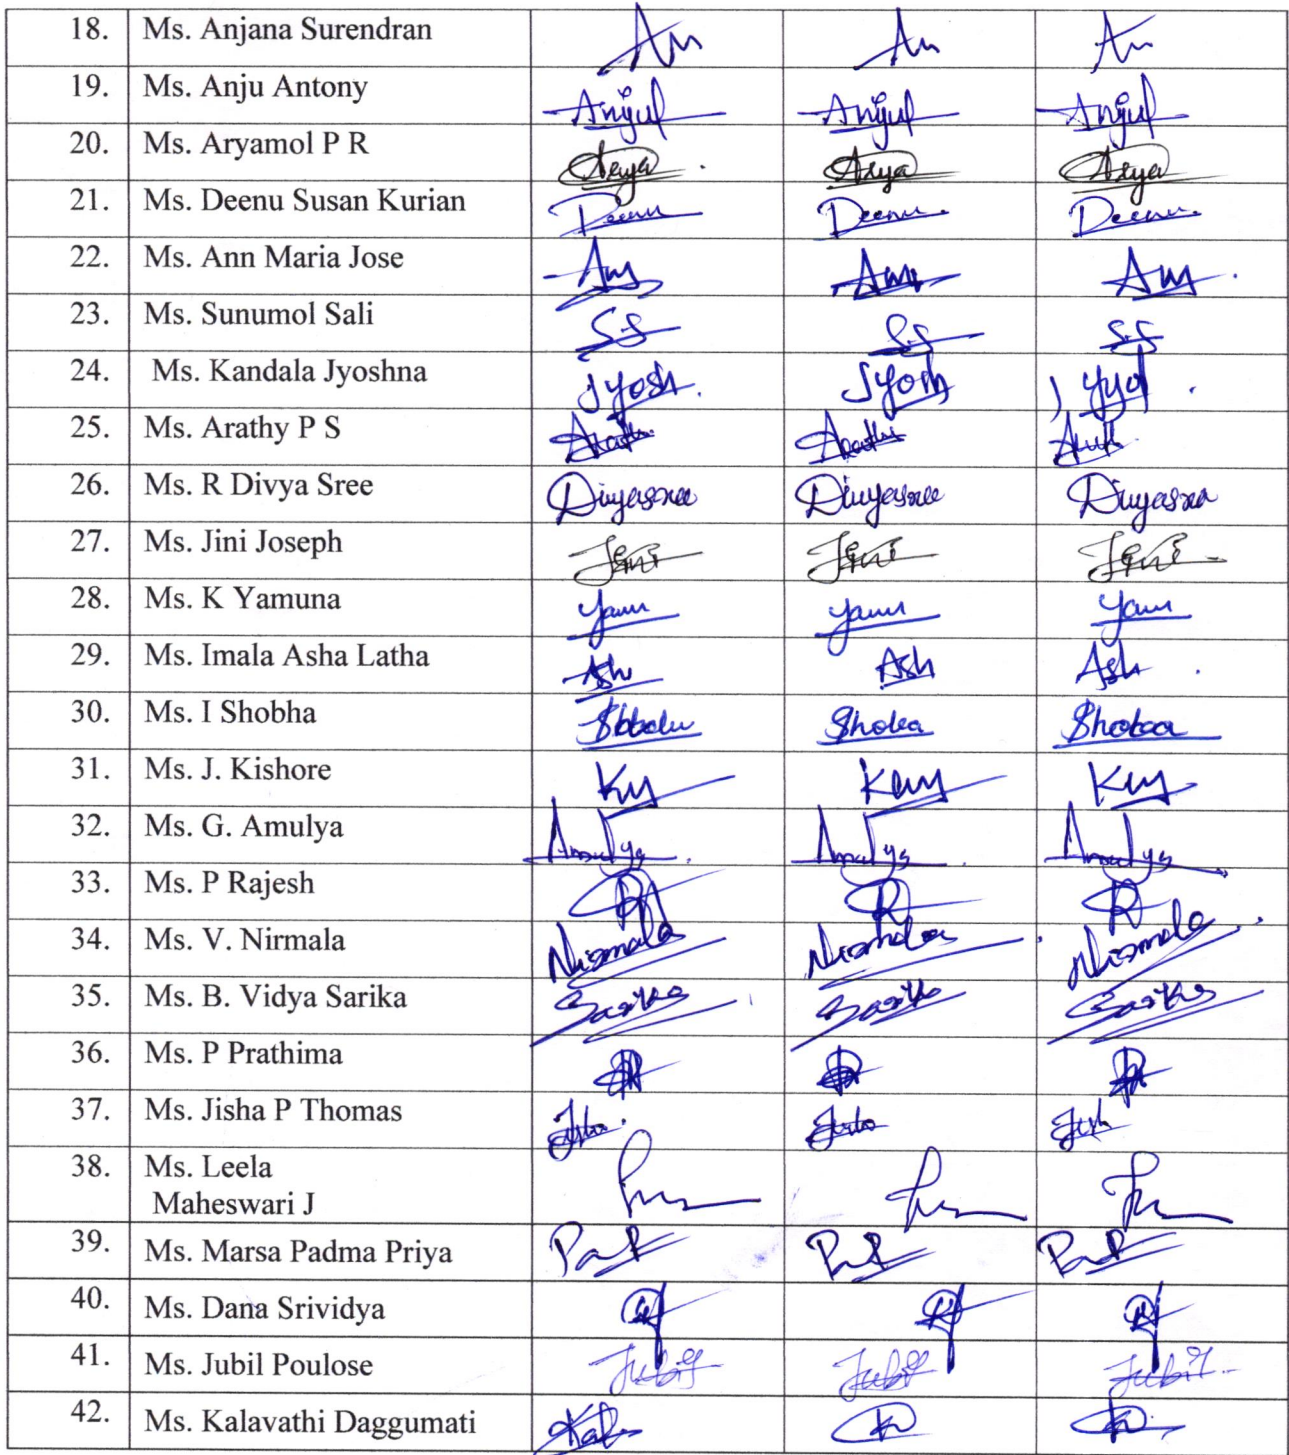 18. Ms. Anjana Surendran An An An
19. Ms. Anju Antony Anjul Anjul Anjul
20. Ms. Aryamol P R Arya Arya Arya
21. Ms. Deenu Susan Kurian Deenu Deenu. Deenu.
22. Ms. Ann Maria Jose
23. Ms. Sunumol Sali S.S S.S S.S
24. Ms. Kandala Jyoshna Jyosh. Jyosh
25. Ms. Arathy P S
26. Ms. R Divya Sree Divyasree Divyasree Divyasree
27. Ms. Jini Joseph Jini Jini Jini
28. Ms. K Yamuna Yamu Yamu Yamu
29. Ms. Imala Asha Latha Ash Ash Ash
30. Ms. I Shobha Shobha Shoba Shobaa
31. Ms. J. Kishore
32. Ms. G. Amulya Amulya Amulya Amulya
33. Ms. P Rajesh
34. Ms. V. Nirmala Nirmala Nirmala Nirmala
35. Ms. B. Vidya Sarika Sarika Sarika Sarika
36. Ms. P Prathima
37. Ms. Jisha P Thomas
38. Ms. Leela
Maheswari J
39. Ms. Marsa Padma Priya
40. Ms. Dana Srividya
41. Ms. Jubil Poulose Jubil Jubil Jubil
42. Ms. Kalavathi Daggumati